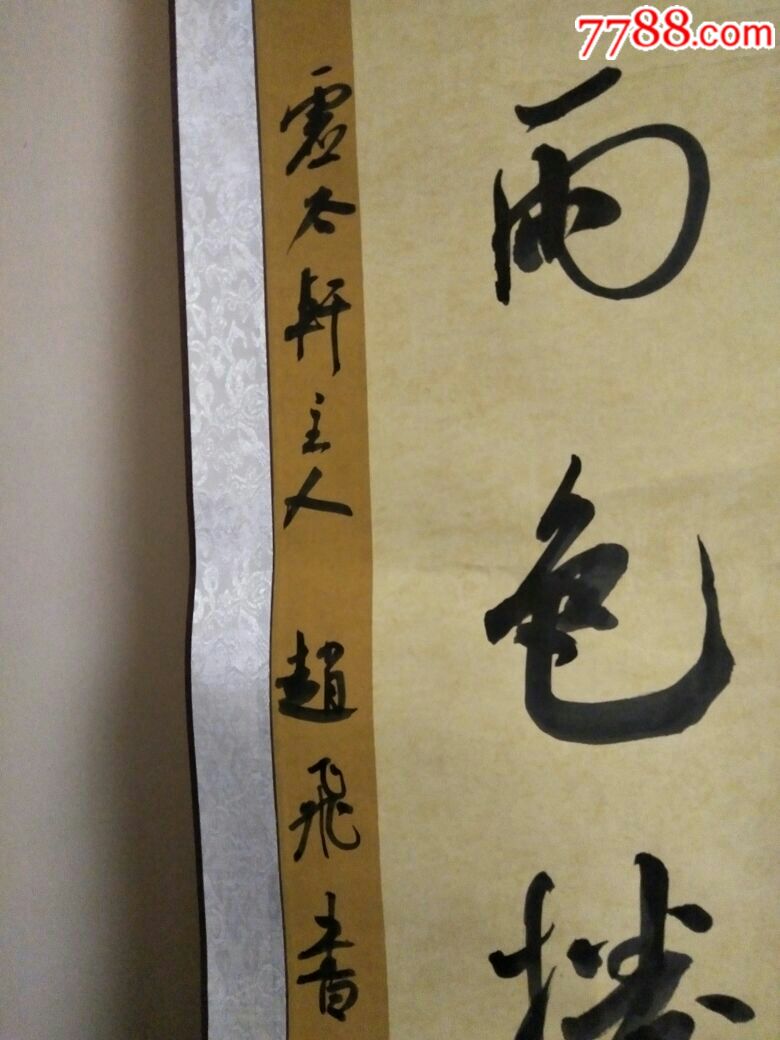 7788.com
雨色捲
虚谷軒主人 趙飛書